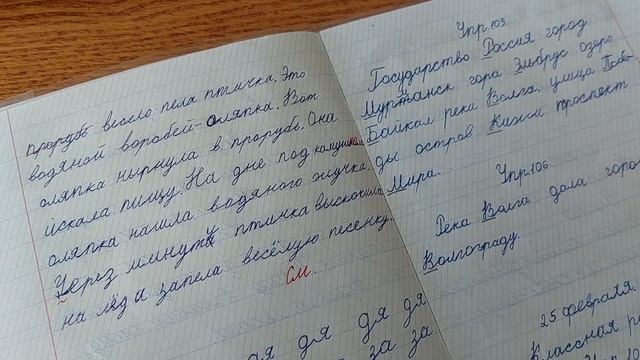 прорубь весело пела птичка. Это
водяной воробей-оляпка. Вот
оляпка нырнула в прорубь. Она
искала пищу. На дне под камушком
оляпка нашла водяного жучка.
Через минуту птичка выскочила
на лёд и запела весёлую песенку.
См.
дя дя дя
за за
Упр.105
Государство Россия город
Мурманск гора Эльбрус озеро
Байкал река Волга, улица Побе-
ды остров Кижи проспект
Мира.
Упр.106
Река Волга дала горо
Волгограду.
25 февраля.
Классная ра